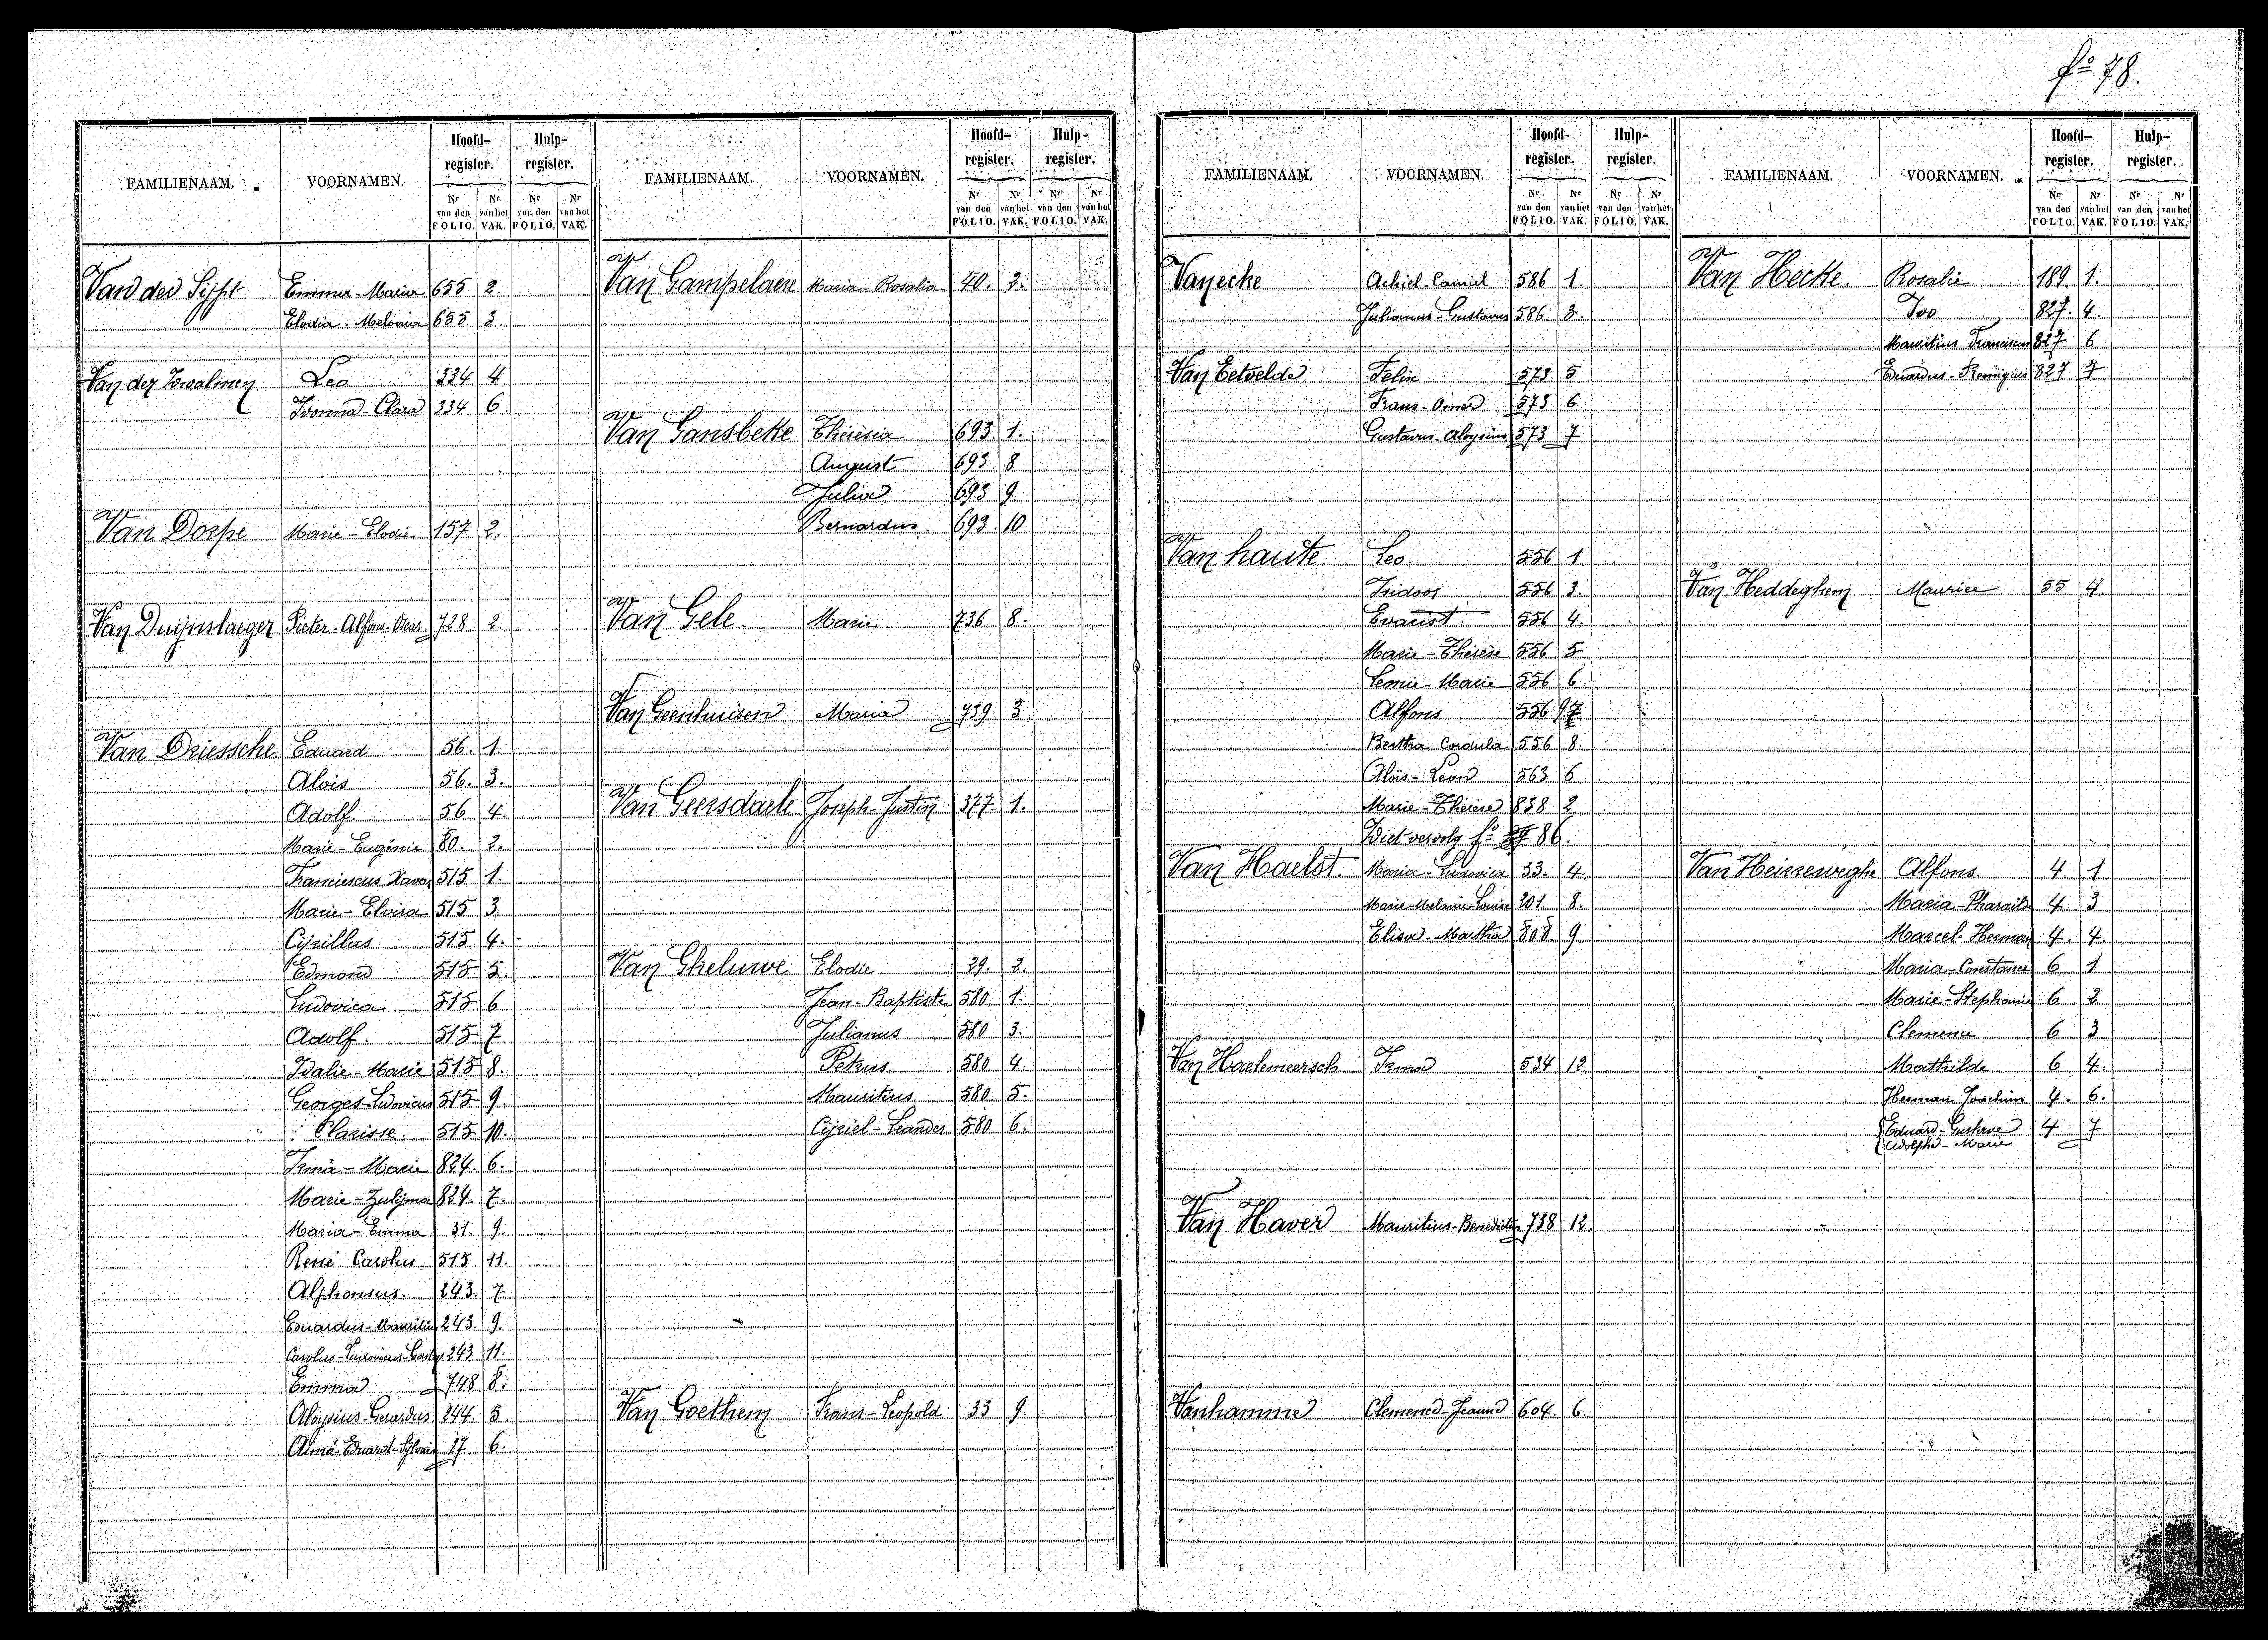 fº 78.
FAMILIENAAM. VOORNAMEN. Hoofd-register. Hulp-register.
Nr van den FOLIO. Nr van het VAK. Nr van den FOLIO. Nr van het VAK.
Emma-Maria 655 2.
Elodia-Melonia 655 3.
Leo 334 4
Ivonna-Clara 334 6.
Van Dorpe Marie-Elodie 157 2.
Van Duijnslaeger Pieter-Alfons-Oscar 728 2
Van Driessche Eduard 56. 1.
Alois 56. 3.
Adolf. 56 4.
Marie-Eugénie 80. 2.
Franciscus Xaver 515 1.
Marie-Elvira 515 3
Cijrillus 515 4.
Edmond 515 5.
Ludovica 515 6
Adolf. 515 7
Idalie-Marie 515 8.
Georges-Ludovicus 515 9.
Clarisse. 515 10.
Irma-Marie 824. 6.
Marie-Zulijma 824. 7.
Maria-Emma 31. 9.
René Carolus 515. 11.
Alphonsus. 243. 7
Eduardus-Mauritius 243. 9.
Carolus-Ludovicus 243 11.
Emma 748 8.
Aloysius-Gerardus 244. 5.
Aimé-Eduard-Sylvain 17 6.
FAMILIENAAM. VOORNAMEN. Hoofd-register. Hulp-register.
Nr van den FOLIO. Nr van het VAK. Nr van den FOLIO. Nr van het VAK.
Van Gampelaere Maria-Rosalia 40. 2.
Van Gansbeke Thérèsia 693. 1.
August 693 8
Julia 693 9
Bernardus. 693. 10
Van Gele. Marie 736 8.
Van Geenhuisen Maria 739 3
Van Geersdaele Joseph-Justin 377 1.
Van Gheluwe Elodie 29. 2.
Jean-Baptiste 580 1.
Julianus 580 3.
Petrus. 580 4.
Mauritius 580 5.
Cijriel-Leander 580 6.
Van Goethem Frans-Leopold 33 9.
FAMILIENAAM. VOORNAMEN. Hoofd-register. Hulp-register.
Nr van den FOLIO. Nr van het VAK. Nr van den FOLIO. Nr van het VAK.
Van ecke Achiel-Camiel 586 1
Julianus-Gustavus 586 3.
Van Eetvelde Felix 573 5
Frans-Omer 573 6
Gustavus-Aloysius 573 7
Van haute Leo. 556 1
Isidoor 556 3.
Evarist. 556 4.
Marie-Thérèse 556 5
Leonie-Marie 556 6
Alfons 556 9
Bertha Cordula 556 8.
Aloïs-Leon 563 6
Marie-Thérèse 838 2
Ziet vervolg fº 86.
Van Haelst. Maria-Ludovica 33. 4.
Marie-Melanie-Louise 201 8.
Elisa-Martha 808. 9.
Van Haelemeersch Irma 534 12
Van Haver Mauritius-Benedictus 738 12.
Vanhamme Clemence-Jeanne 604. 6.
FAMILIENAAM. VOORNAMEN. Hoofd-register. Hulp-register.
Nr van den FOLIO. Nr van het VAK. Nr van den FOLIO. Nr van het VAK.
Van Hecke. Rosalie 189. 1.
Ivo 827. 4.
Mauritius Franciscus 827 6
Eduardus-Remigius 827 7
Van Heddeghem Maurice 55 4
Van Heisseweghe Alfons. 4. 1
Maria-Pharaïlde 4 3
Marcel-Herman 4. 4.
Maria-Constance 6 1
Marie-Stephanie 6 2
Clemence 6 3
Mathilde 6 4.
Herman Joachim 4. 6.
Eduard-Gustave 4 7
Adolphe-Marie